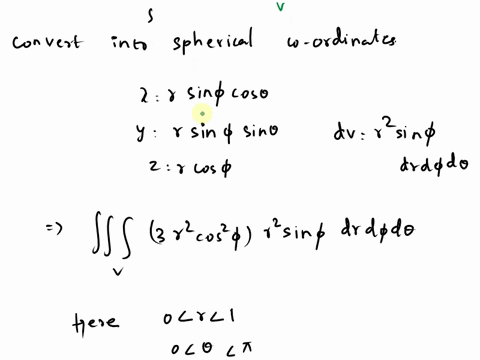 S V
convert into spherical co-ordinates
x: r sinϕ cosθ
y: r sinϕ sinθ dv: r² sinϕ
z: r cosϕ dr dϕ dθ
=> ∭_V (3 r² cos²ϕ) r² sinϕ dr dϕ dθ
Here 0 < r < 1
0 < θ < π